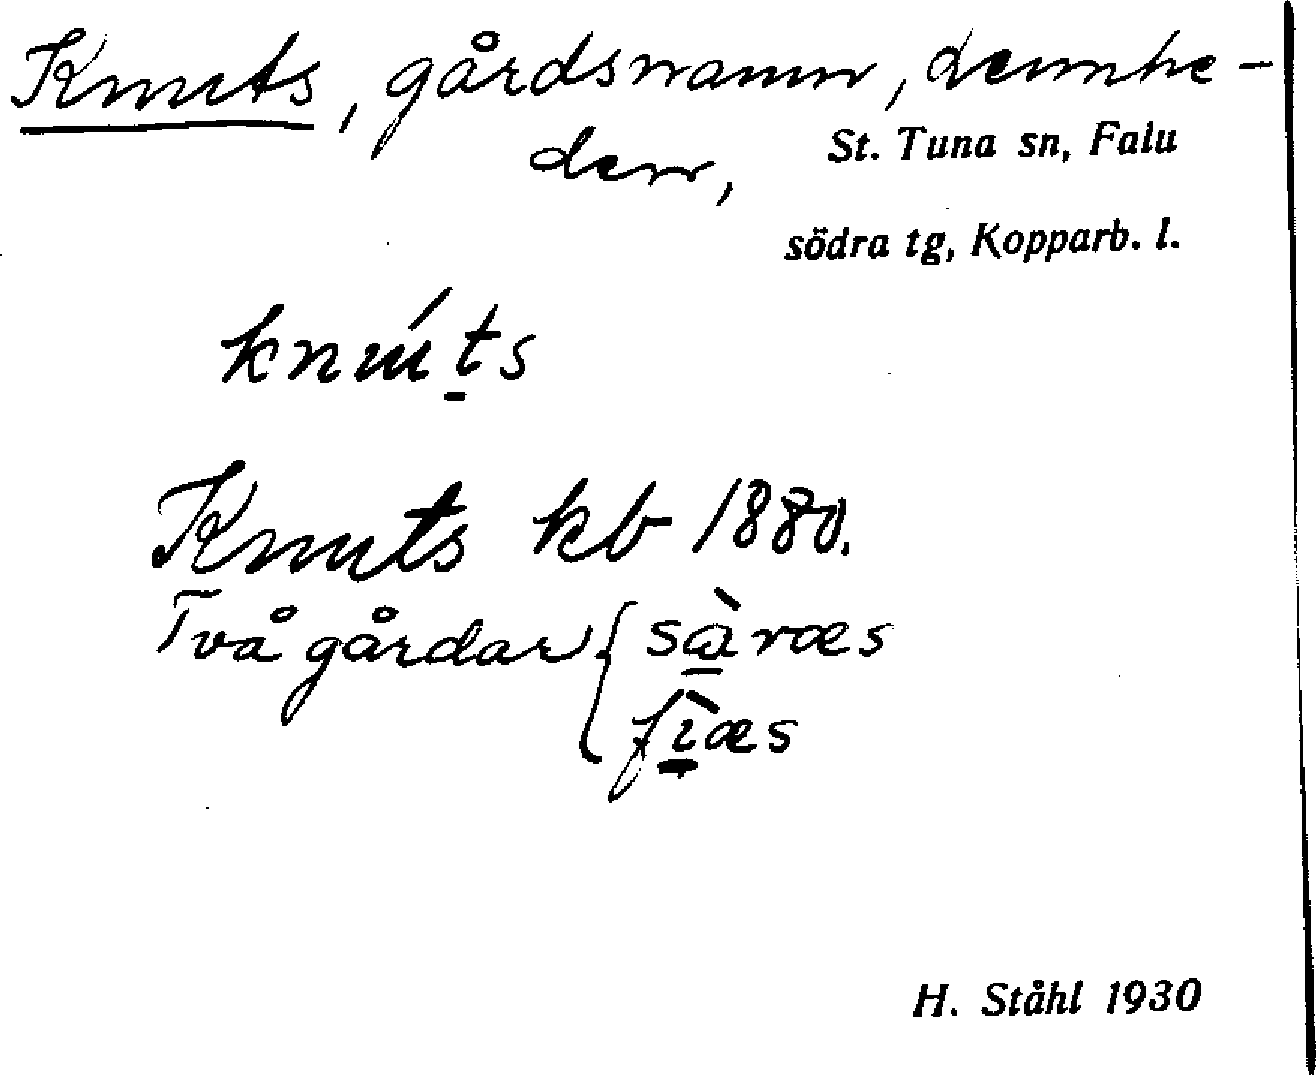 Knuts, gårdsnamn, Lennhe-
den, St. Tuna sn, Falu
södra tg, Kopparb. l.
knút̠s
Knuts kb 1880.
Två gårdar { sà̠ræs
fì̠æs
H. Ståhl 1930